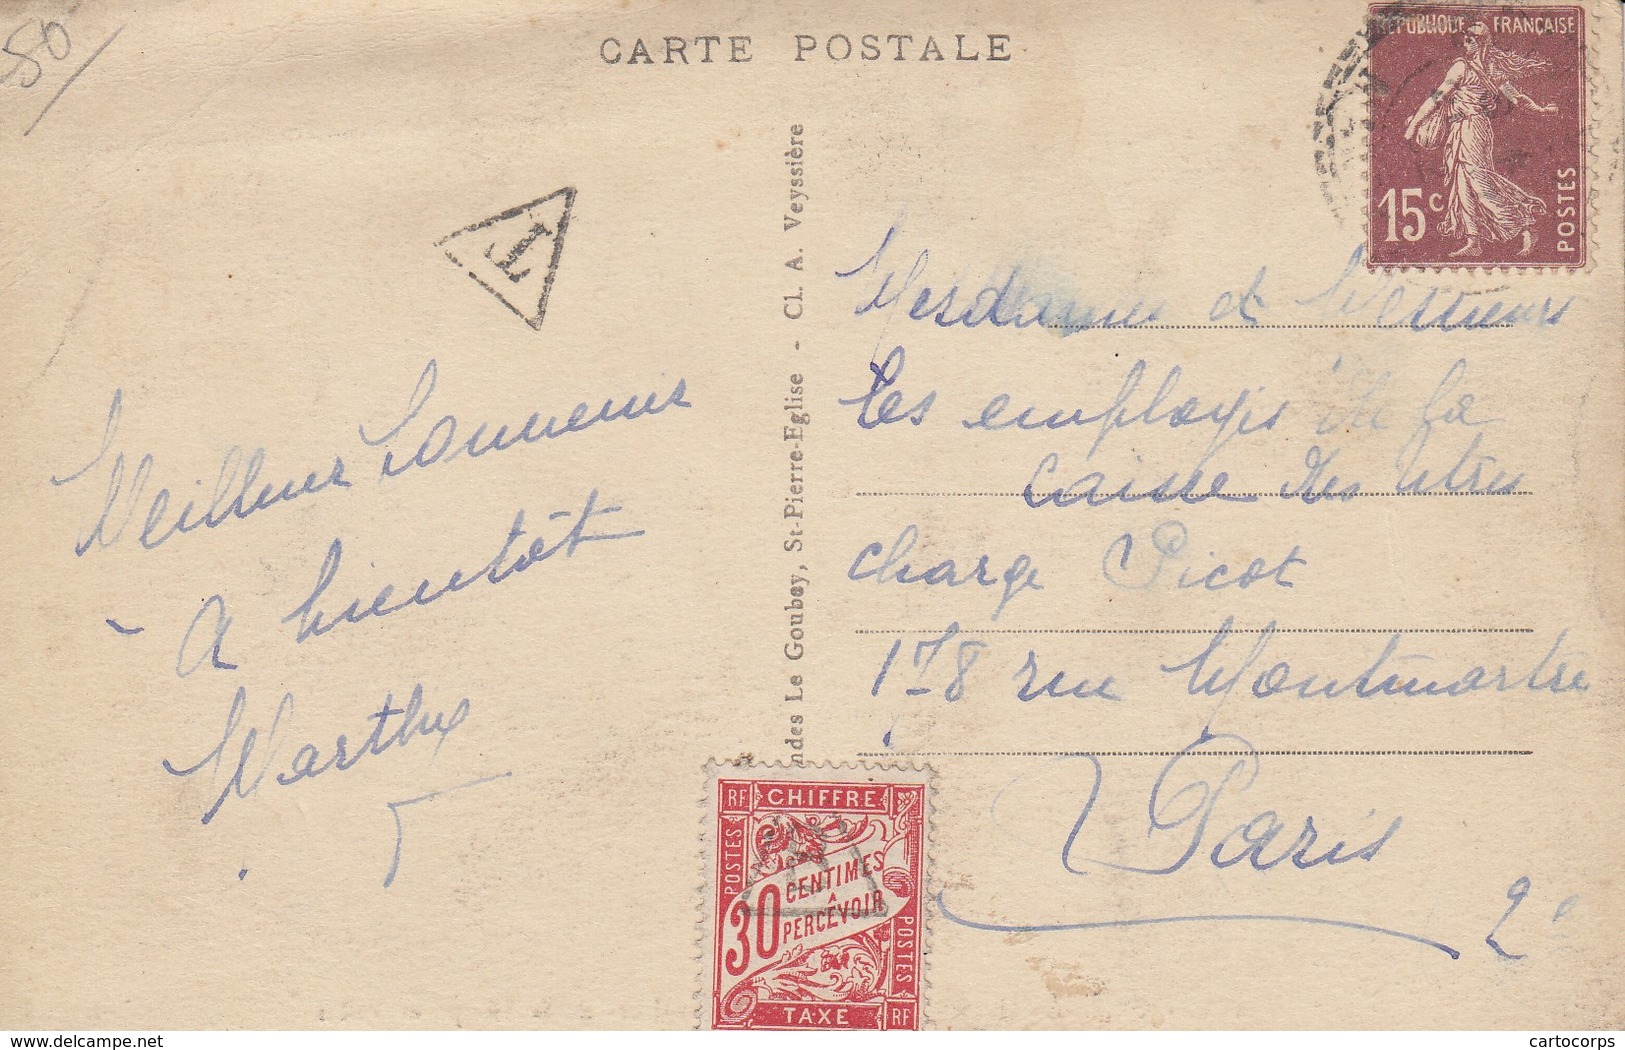 50
CARTE POSTALE
RÉPUBLIQUE FRANÇAISE
15c
POSTES
T
Meilleur Souvenir
A bientôt
Marthe
ndes Le Goubey, St-Pierre-Eglise - Cl. A. Veyssière
Mesdames et Messieurs
les employés de la
Caisse des titres
charge Picot
178 rue Montmartre
Paris
2e
RF CHIFFRE
POSTES
30 CENTIMES
A
PERCEVOIR
POSTES
TAXE RF
delcampe.net
cartocorps